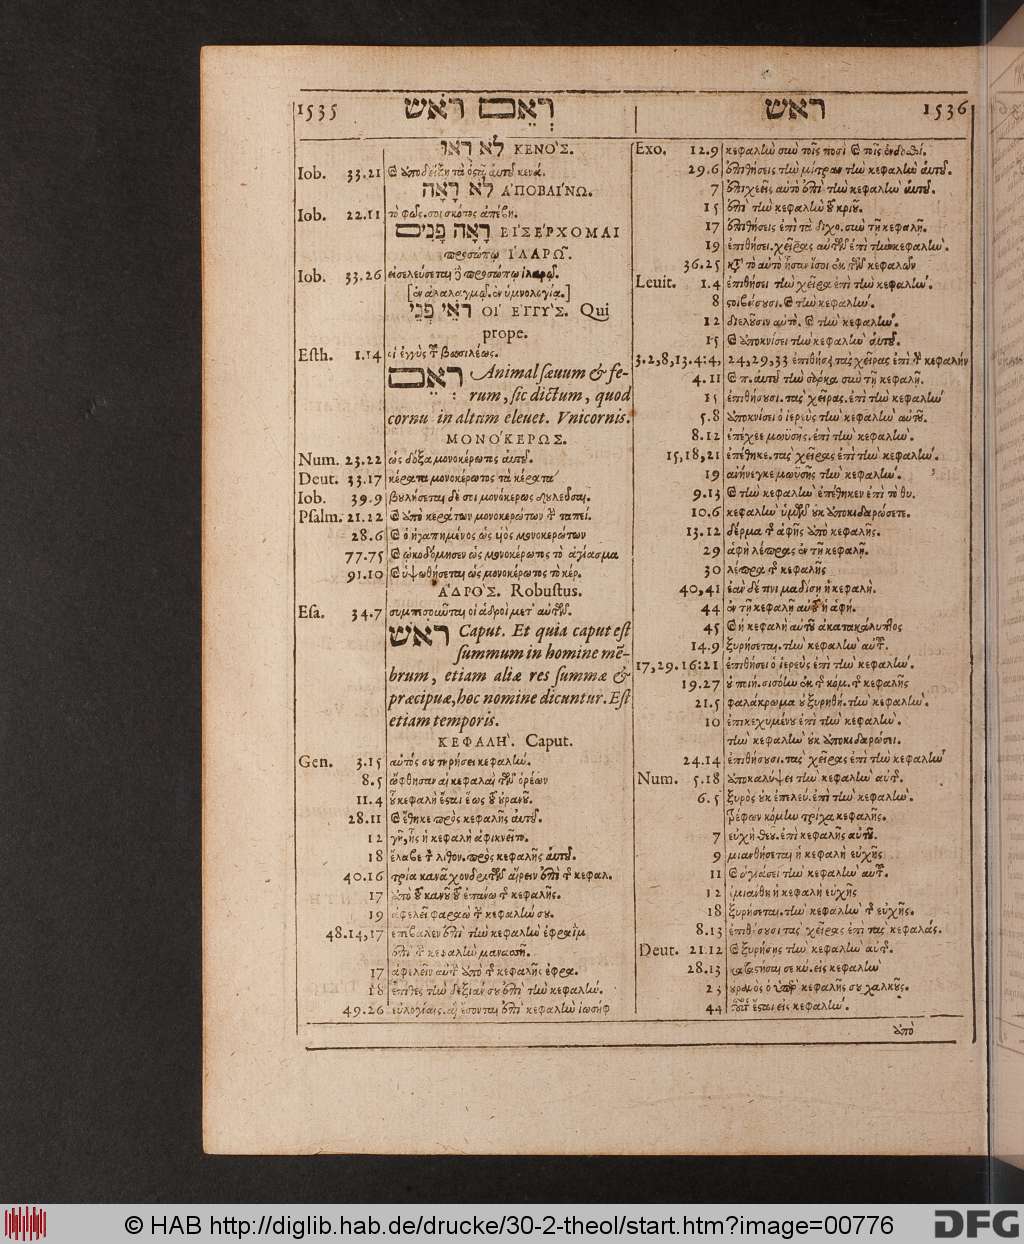 1535 רְאֵם רֹאשׁ
ראש 1536
לֹא רָאוּ ΚΕΝΟ'Σ.
Iob. 33.21 κενά.
לֹא רָאָה Α'ΠΟΒΑΙ'ΝΩ.
Iob. 22.11 τὸ φῶς σοι σκότος ἀπέβη.
רָאָה פָנִים ΕΙ'ΣΕ'ΡΧΟΜΑΙ
προσώπῳ Ι'ΛΑΡΩ͂.
Iob. 33.26 εἰσελεύσεται προσώπῳ ἱλαρῷ.
[ἐν ἀλαλαγμῷ. ἐν ὑμνολογίᾳ.]
רֹאֵי פְנֵי ΟΙ' ΕΓΓΥ'Σ. Qui
prope.
Esth. 1.14 οἱ ἐγγὺς τοῦ βασιλέως.
רְאֵם Animal sæuum & fe-
rum, sic dictum, quod
cornu in altum eleuet. Vnicornis.
ΜΟΝΟ'ΚΕΡΩΣ.
Num. 23.22 ὡς δόξα μονοκέρωτος αὐτοῦ.
Deut. 33.17 κέρατα μονοκέρωτος τὰ κέρατα
Iob. 39.9 βουλήσεται δέ σοι μονόκερως δουλεῦσαι.
Psalm. 21.22 καὶ ἀπὸ κεράτων μονοκερώτων τ̀ ταπεί.
28.6 καὶ ὁ ἠγαπημένος ὡς υἱὸς μονοκερώτων
77.75 καὶ ᾠκοδόμησεν ὡς μονοκέρωτος τὸ ἁγίασμα
91.10 καὶ ὑψωθήσεται ὡς μονοκέρωτος τὸ κέρ.
Α'ΔΡΟ'Σ. Robustus.
Esa. 34.7 συμπεσοῦνται οἱ ἁδροὶ μετ' αὐτῶν.
רֹאשׁ Caput. Et quia caput est
summum in homine mē-
brum, etiam aliæ res summæ &
præcipuæ, hoc nomine dicuntur. Est
etiam temporis.
ΚΕΦΑΛΗ'. Caput.
Gen. 3.15 αὐτός σου τηρήσει κεφαλήν.
8.5 ὤφθησαν αἱ κεφαλαὶ τῶν ὀρέων
11.4 οὗ κεφαλὴ ἔσται ἕως τοῦ οὐρανοῦ.
28.11 καὶ ἔθηκε πρὸς κεφαλῆς αὐτοῦ.
12 γῆν, ἧς ἡ κεφαλὴ ἀφικνεῖτο.
18 ἔλαβε τ̀ λίθον. πρὸς κεφαλῆς αὐτοῦ.
40.16 τρία κανᾶ χονδριτῶν αἴρειν ἐπὶ τῆς κεφαλ.
17 ἀπὸ τοῦ κανοῦ τοῦ ἐπάνω τῆς κεφαλῆς.
19 ἀφελεῖ φαραὼ τὴν κεφαλήν σου.
48.14,17 ἐπέβαλεν ἐπὶ τὴν κεφαλὴν ἐφραῒμ
ἐπὶ τ̀ κεφαλὴν μανασσῆ.
17 ἀφελεῖν αὐτὴν ἀπὸ τῆς κεφαλῆς ἐφρα.
18 ἐπίθες τὴν δεξιάν σου ἐπὶ τὴν κεφαλήν.
49.26 εὐλογίαις. αἳ ἔσονται ἐπὶ κεφαλὴν ἰωσήφ
Exo. 12.9 κεφαλὴν σὺν τοῖς ποσὶ καὶ τοῖς ἐνδοθί.
29.6 ἐπιθήσεις τὴν μίτραν τὴν κεφαλὴν αὐτοῦ.
7 ἐπιχεεῖς αὐτὸ ἐπὶ τὴν κεφαλὴν αὐτοῦ.
15 ἐπὶ τὴν κεφαλὴν τοῦ κριοῦ.
17 ἐπιθήσεις ἐπὶ τὰ διχο. σὺν τῇ κεφαλῇ.
19 ἐπιθήσει. χεῖρας αὐτῶν ἐπὶ τὴν κεφαλήν.
36.25 κατὰ τὸ αὐτὸ ἦσαν ἴσοι ἐκ τῶν κεφαλῶν
Leuit. 1.4 ἐπιθήσει τὴν χεῖρα ἐπὶ τὴν κεφαλήν.
8 στοιβάσουσι. καὶ τὴν κεφαλήν.
12 διελοῦσιν αὐτὸ. καὶ τὴν κεφαλήν.
15 καὶ ἀποκνίσει τὴν κεφαλὴν αὐτοῦ.
3.2,8,13.4:4, 24,29,33 ἐπιθήσει τὰς χεῖρας ἐπὶ τ̀ κεφαλήν
4.11 καὶ π. αὐτοῦ τὴν σάρκα σὺν τῇ κεφαλῇ.
15 ἐπιθήσουσι. τὰς χεῖρας. ἐπὶ τὴν κεφαλήν
5.8 ἀποκνίσει ὁ ἱερεὺς τὴν κεφαλὴν αὐτοῦ.
8.12 ἐπέχεε μωϋσῆς. ἐπὶ τὴν κεφαλήν.
15,18,21 ἐπέθηκε. τὰς χεῖρας ἐπὶ τὴν κεφαλήν.
19 ἀνήνεγκε μωϋσῆς τὴν κεφαλήν.
9.13 καὶ τὴν κεφαλὴν ἐπέθηκεν ἐπὶ τὸ θυ.
10.6 κεφαλὴν ὑμῶν οὐκ ἀποκιδαρώσετε.
13.12 δέρμα τῆς ἁφῆς ἀπὸ κεφαλῆς.
29 ἁφὴ λέπρας ἐν τῇ κεφαλῇ.
30 λέπρα τῆς κεφαλῆς
40,41 ἐὰν δέ τινι μαδήσῃ ἡ κεφαλὴ.
44 ἐν τῇ κεφαλῇ αὐτοῦ ἡ ἁφή.
45 καὶ ἡ κεφαλὴ αὐτοῦ ἀκατακάλυπτος
14.9 ξυρήσεται. τὴν κεφαλὴν αὐτοῦ.
17,29.16:21 ἐπιθήσει ὁ ἱερεὺς ἐπὶ τὴν κεφαλήν.
19.27 οὐ ποιή. σισόην ἐκ τῆς κόμ. τῆς κεφαλῆς
21.5 φαλάκρωμα οὐ ξυρηθή. τὴν κεφαλήν.
10 ἐπικεχυμένου ἐπὶ τὴν κεφαλήν.
τὴν κεφαλὴν οὐκ ἀποκιδαρώσει.
24.14 ἐπιθήσουσι. τὰς χεῖρας ἐπὶ τὴν κεφαλὴν
Num. 5.18 ἀποκαλύψει τὴν κεφαλὴν αὐτῆς.
6.5 ξυρὸς οὐκ ἐπελεύ. ἐπὶ τὴν κεφαλήν.
τρέφων κόμην τρίχα κεφαλῆς.
7 εὐχὴ θεοῦ. ἐπὶ κεφαλῆς αὐτοῦ.
9 μιανθήσεται ἡ κεφαλὴ εὐχῆς
11 καὶ ἁγιάσει τὴν κεφαλὴν αὐτοῦ.
12 ἐμιάνθη ἡ κεφαλὴ εὐχῆς
18 ξυρήσεται. τὴν κεφαλὴν τῆς εὐχῆς.
8.13 ἐπιθήσουσι τὰς χεῖρας ἐπὶ τὰς κεφαλάς.
Deut. 21.12 καὶ ξυρήσῃς τὴν κεφαλὴν αὐτῆς.
28.13 καταστήσαι σε κύ. εἰς κεφαλὴν
23 οὐρανὸς ὁ ὑπὲρ κεφαλῆς σου χαλκοῦς.
44 οὗτος ἔσται εἰς κεφαλήν.
ἀπὸ
© HAB http://diglib.hab.de/drucke/30-2-theol/start.htm?image=00776
DFG